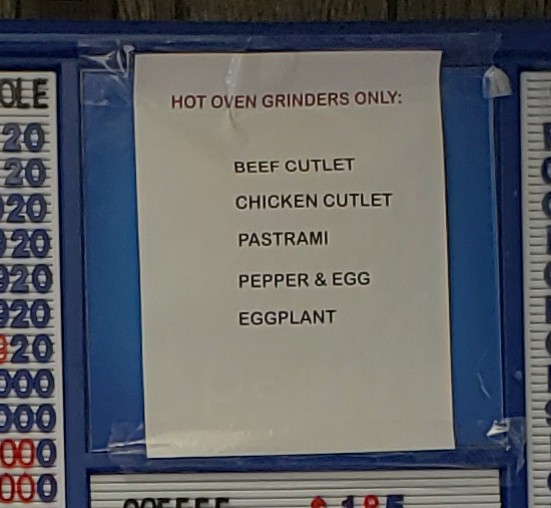 OLE
20
20
920
920
920
920
920
000
000
000
000
HOT OVEN GRINDERS ONLY:
BEEF CUTLET
CHICKEN CUTLET
PASTRAMI
PEPPER & EGG
EGGPLANT
COFFEE 185